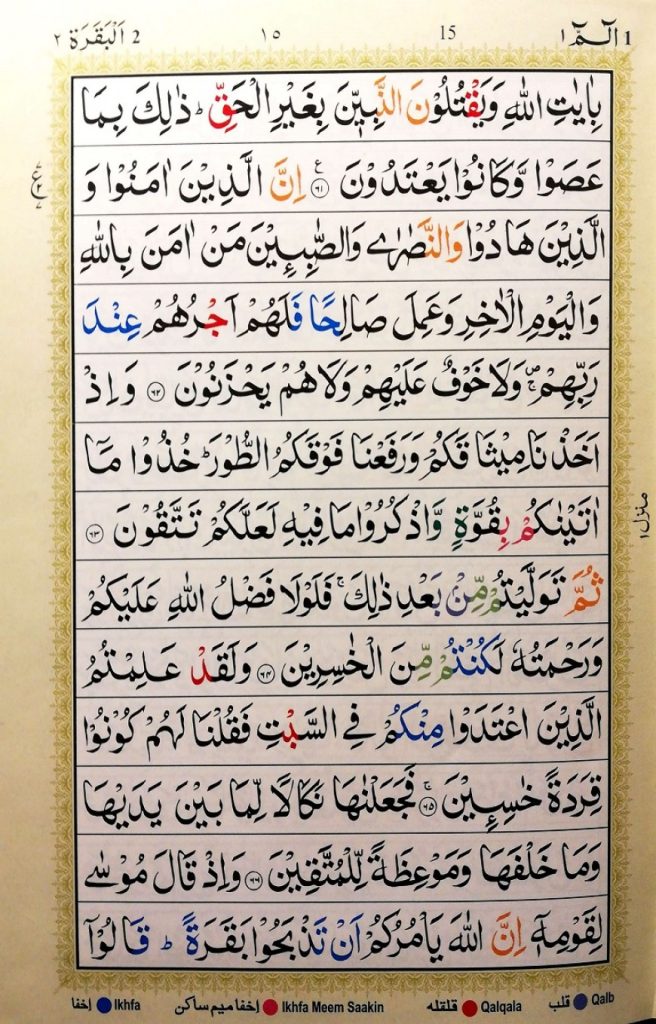 الٓمّٓ ١ 1 15 ١٥ 2 اَلْبَقَرَة ٢
بِاٰيٰتِ اللّٰهِ وَيَقْتُلُوْنَ النَّبِيّٖنَ بِغَيْرِ الْحَقِّ ؕ ذٰلِكَ بِمَا
عَصَوْا وَّكَانُوْا يَعْتَدُوْنَ ﴿٦١﴾ اِنَّ الَّذِيْنَ اٰمَنُوْا وَ
الَّذِيْنَ هَادُوْا وَالنَّصٰرٰى وَالصّٰبِـِٕيْنَ مَنْ اٰمَنَ بِاللّٰهِ
وَالْيَوْمِ الْاٰخِرِ وَعَمِلَ صَالِحًا فَلَهُمْ اَجْرُهُمْ عِنْدَ
رَبِّهِمْ ۪ۚ وَلَا خَوْفٌ عَلَيْهِمْ وَلَا هُمْ يَحْزَنُوْنَ ﴿٦٢﴾ وَاِذْ
اَخَذْنَا مِيْثَاقَكُمْ وَرَفَعْنَا فَوْقَكُمُ الطُّوْرَ ؕ خُذُوْا مَاۤ
اٰتَيْنٰكُمْ بِقُوَّةٍ وَّاذْكُرُوْا مَا فِيْهِ لَعَلَّكُمْ تَتَّقُوْنَ ﴿٦٣﴾
ثُمَّ تَوَلَّيْتُمْ مِّنْۢ بَعْدِ ذٰلِكَ ۚ فَلَوْلَا فَضْلُ اللّٰهِ عَلَيْكُمْ
وَرَحْمَتُهٗ لَكُنْتُمْ مِّنَ الْخٰسِرِيْنَ ﴿٦٤﴾ وَلَقَدْ عَلِمْتُمُ
الَّذِيْنَ اعْتَدَوْا مِنْكُمْ فِي السَّبْتِ فَقُلْنَا لَهُمْ كُوْنُوْا
قِرَدَةً خٰسِـِٕيْنَ ﴿٦٥﴾ ۚ فَجَعَلْنٰهَا نَكَالًا لِّمَا بَيْنَ يَدَيْهَا
وَمَا خَلْفَهَا وَمَوْعِظَةً لِّلْمُتَّقِيْنَ ﴿٦٦﴾ وَاِذْ قَالَ مُوْسٰى
لِقَوْمِهٖۤ اِنَّ اللّٰهَ يَاْمُرُكُمْ اَنْ تَذْبَحُوْا بَقَرَةً ؕ قَالُوْۤا
ع
منزل ١
قلب Qalb قلقله Qalqala اخفا ميم ساكن Ikhfa Meem Saakin اخفا Ikhfa